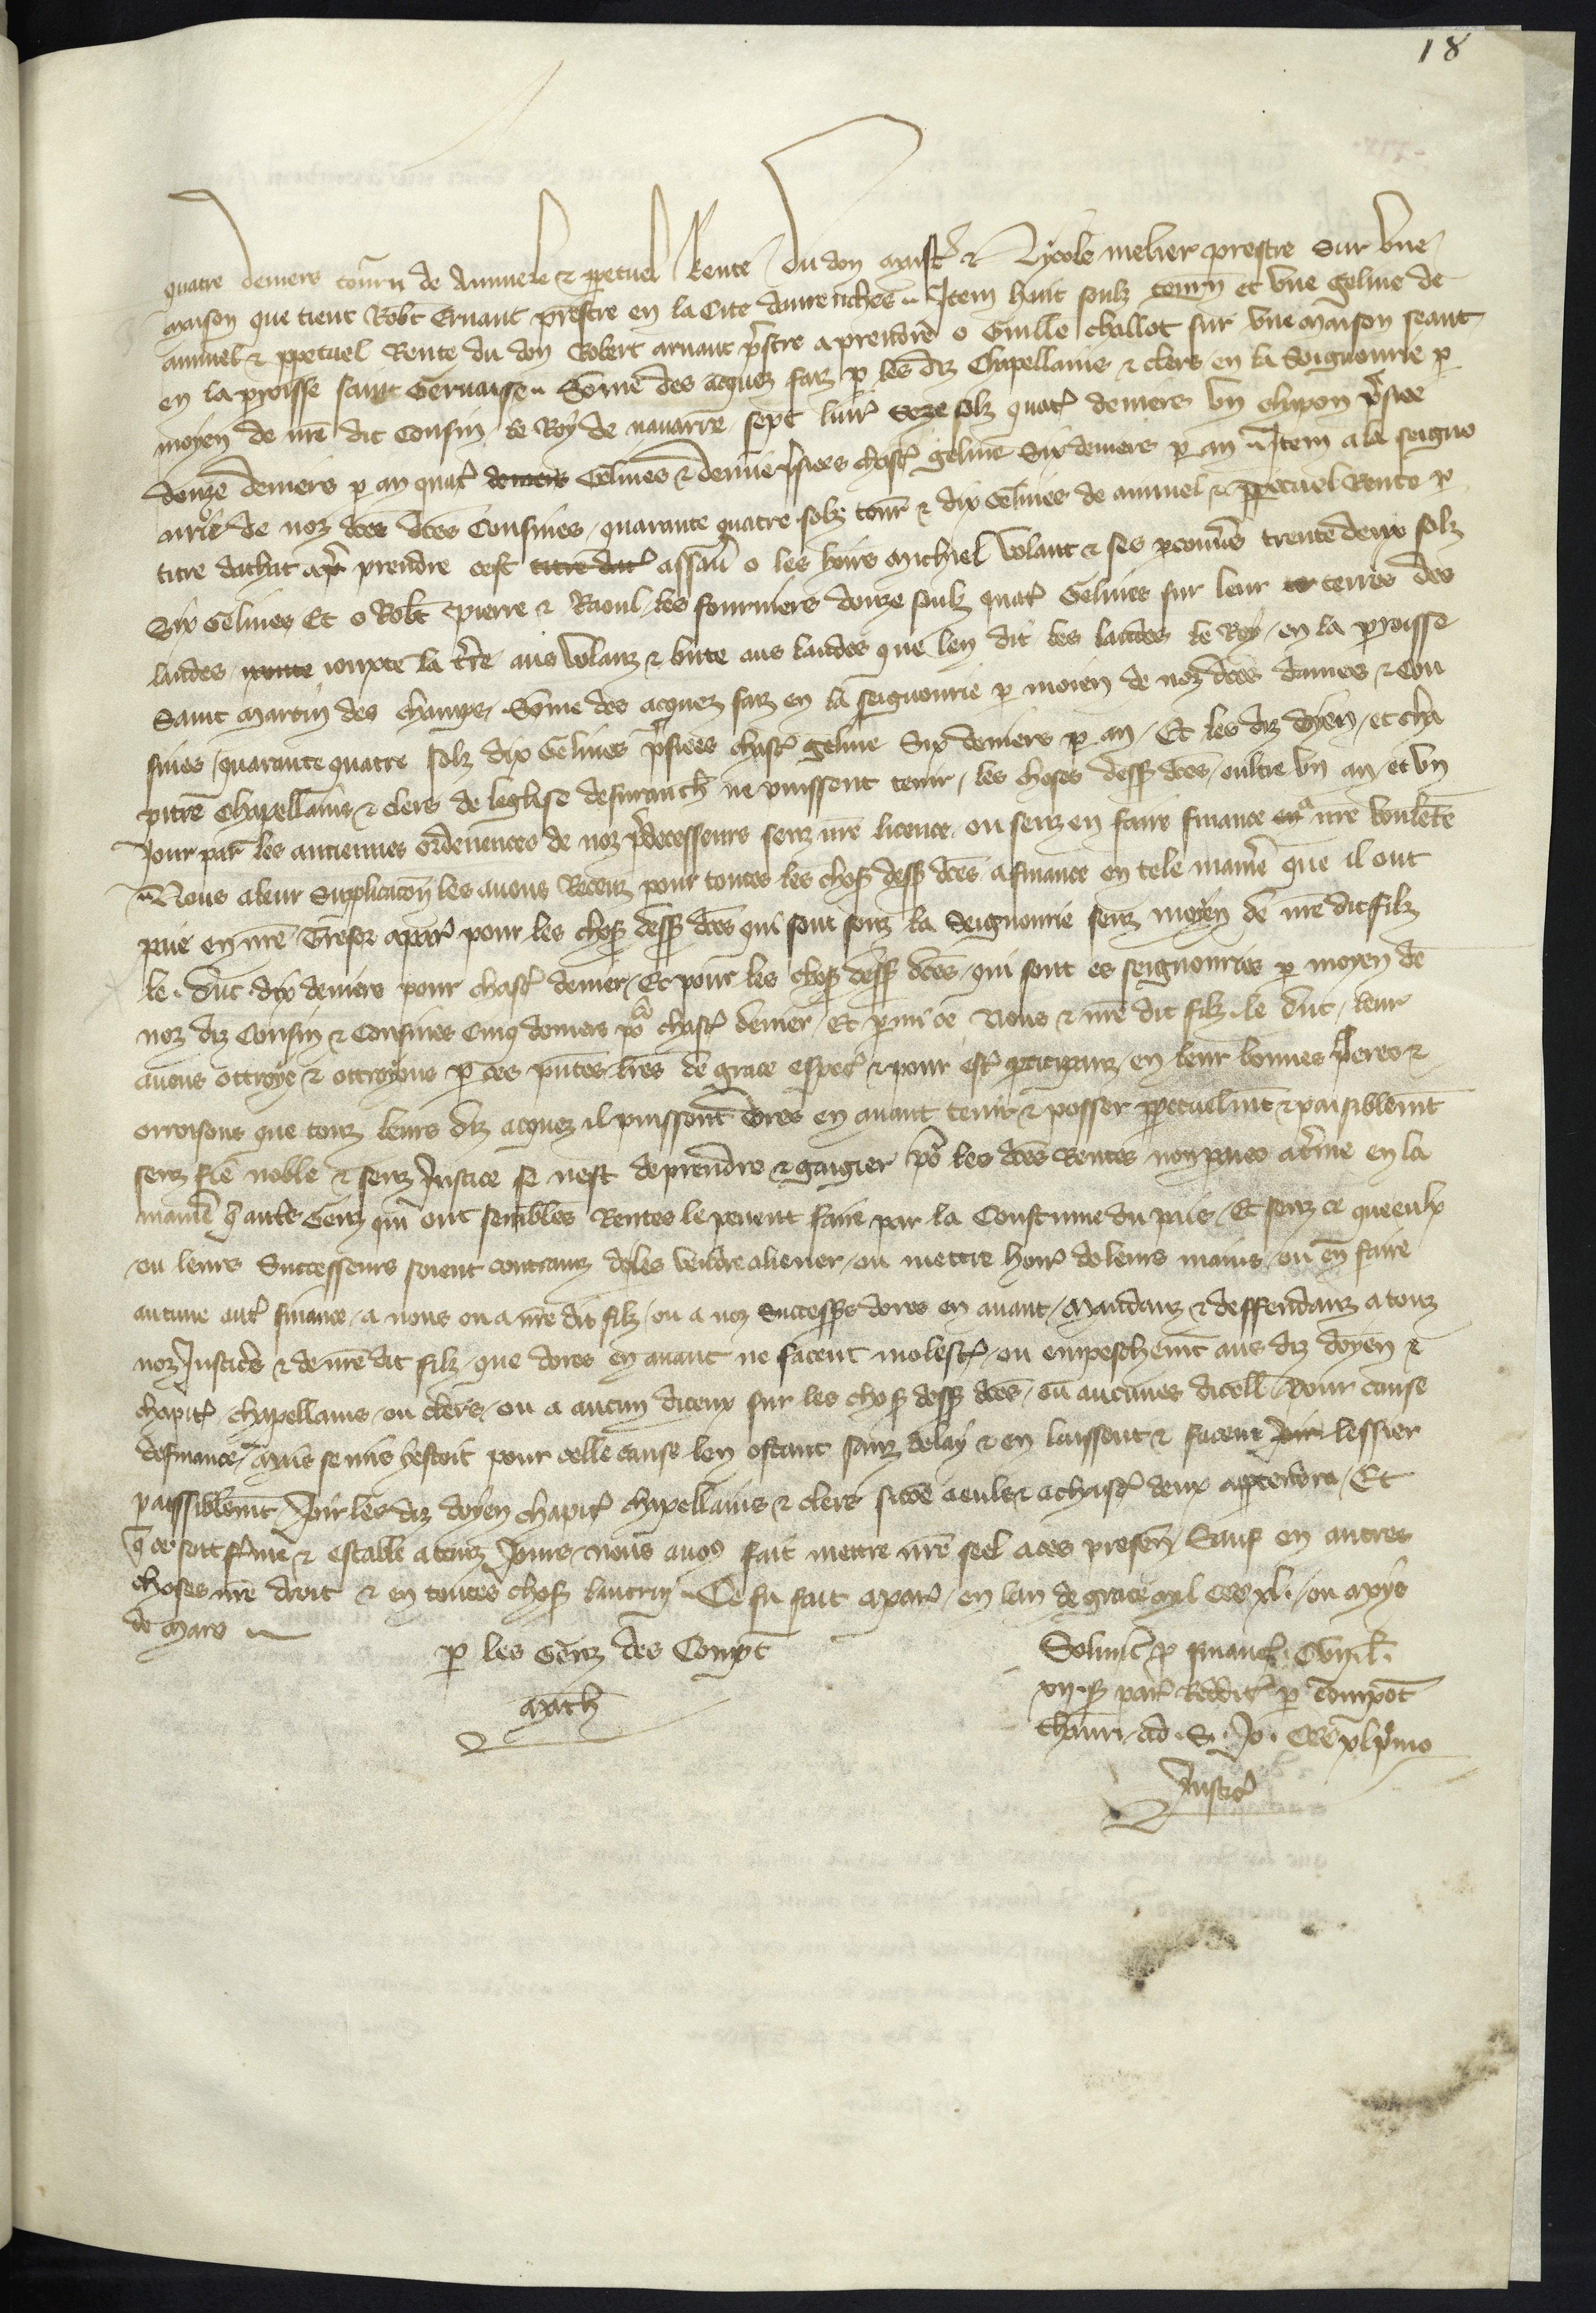 18
quatre deniers tourn de Annuele & ppetuel Rente du don maistr & Nycole melier prestre Sur vne
maison que tient Robt Ernaut prestre en la Cite daurenches Item huit soulz tourn et vne geline de
annuel & ppetuel Rente du don Robert arnaut pstre a prendre o Guille challot sur vne maison seant
en la proisse saint Geruaise Somme des acquez faiz p les diz Chapellains & clers en la Seignourie p
moyen de nre dit Cousin le Roy de nauarre sept liur seze solz quatr deniers vn chapon psie
douze deniers p an quatr deniers Gelines & demie psiees chascr geline Six deniers p an Item a la seigno
urie de noz dces dces Cousines quarante quatre solz tour & dix Gelines de annuel & ppetuel Rente p
titre dachat a pr prendre cest titre dat assau o les hoirs Michiel Volant & ses pconners trente deux solz
Six Gelines Et o Robt Pierre & Raoul les fourniers douze soulz quatr Gelines sur leur te terres des
landes iouxte la tre aus Volanz & bute aus landes que len dit les landes le Roy en la proisse
Saint Martin des champs Somme des acquez faiz en la seignourie p moien de noz dces dames & Cou
sines quarante quatre solz dix Gelines psiees chascr geline Six deniers p an Et les diz doien et cha
pitre Chapellains & clers de leglise dauranch ne puissent tenir les choses dess dces oultre vn an et vn
Jour par les anciennes ordenences de noz pdecesseurs senz nre licence ou senz en faire finance a nre voulente
Nous a leur Supplicacon les auons Receuz pour toutes les chos dess dces a finance en tele manre que il ont
paie en nre Tresor a par pour les chos dess dces qui sont souz la Seignourie senz moyen de nre dit filz
le duc dix deniers pour chascr denier Et pour les chos dess dces qui sont es seignouries p moyen de
noz diz Cousin & Cousines Cinq deniers po chascr denier Et parmi ce Nous & nre dit filz le duc leur
auons ottroye & ottroyons p ces pntes lres de grace especr & pour estr pticipanz en leur bonnes pieres &
orroisons que touz leurs diz acquez il puissent dores en auant tenir & posser ppetuelmt & paisiblemt
senz fie noble & senz Justice se nest de prendre & gaigier po les dces Rentes non paiees a trme en la
manre q autrs Genz qui ont semblles Rentes le peuent faire par la Coustume du pais Et senz ce que eulx
ou leurs Successeurs soient contrainz de les vendre aliener ou mettre horr de leurs mains ou en faire
aucune autr finance a nous ou a nre dit filz ou a noz Success dores en auant Mandanz & deffendanz a touz
noz Justicrs & de nre dit filz que dores en auant ne facent molestr ou empeschemt aus diz doyen &
chapitr chapellains ou clers ou a aucun diceux sur les chos dess dces ou aucunes dicell pour cause
de finance Mais se mis y estoit pour celle cause len ostant sanz delay & en laissent & facent Joir lessier
paissiblemt Joir les diz doyen chapitr chapellains & clers sicoe a eulx & a chascr deux apptendra Et
q ce soit ferme & estable a touz Jours nous auos fait mettre nre seel a ces presen Sauf en autres
choses nre droit & en toutes chos lautruy Ce fu fait a par en lan de grace mil CCC xl. ou moys
de Mars
p les Genz des Compt
Math
Soluit p financ. Cvii.l.
xii. s par Redditr p Compot
thauri ad. S. Jo. CCC xl pmo
Justic